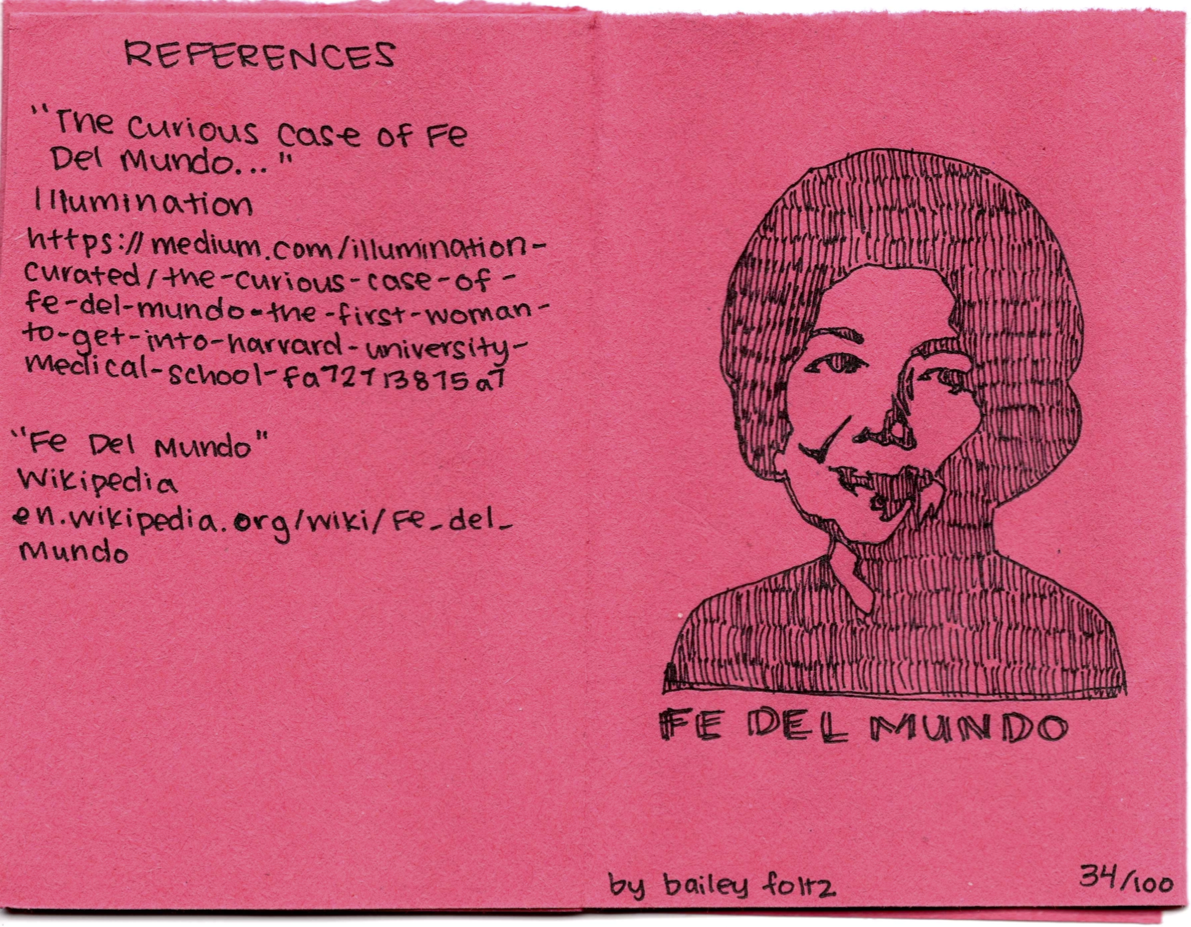 REFERENCES
"The curious case of Fe
Del Mundo..."
Illumination
https://medium.com/illumination-
curated/the-curious-case-of-
fe-del-mundo-the-first-woman-
to-get-into-harvard-university-
medical-school-fa72713875a7
"Fe Del Mundo"
Wikipedia
en.wikipedia.org/wiki/Fe_del_
Mundo
FE DEL MUNDO
by bailey foltz
34/100